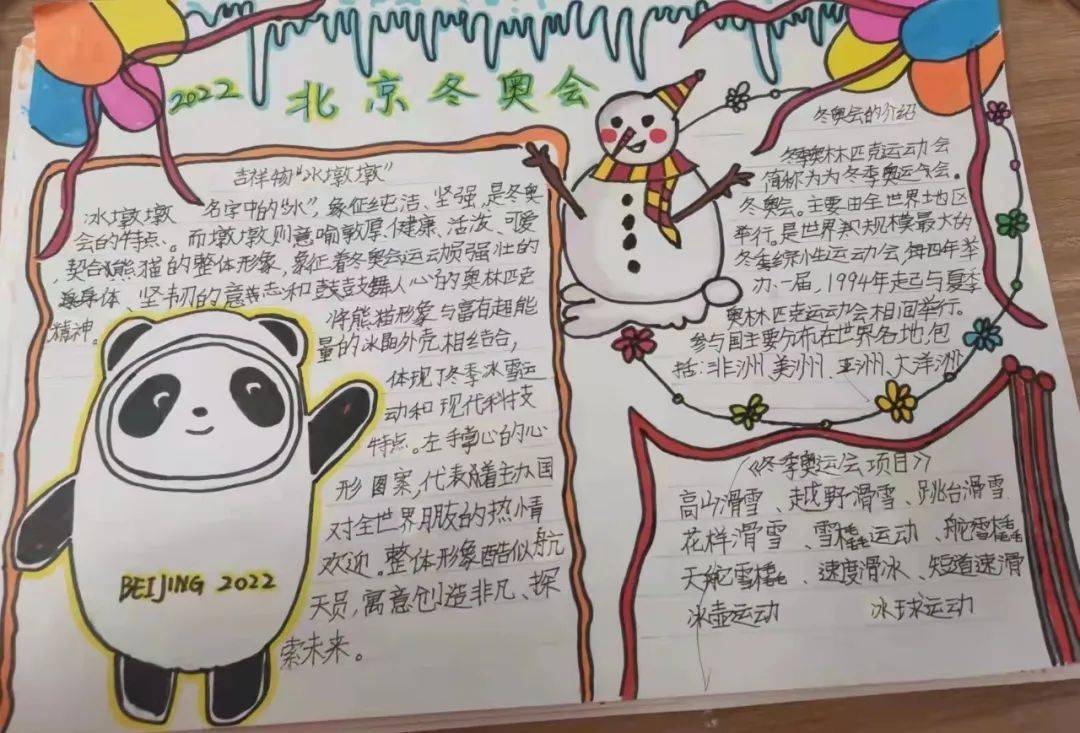 2022 北京冬奥会
吉祥物“冰墩墩”
冰墩墩 名字中的“冰”,象征纯洁、坚强,是冬奥
会的特点、。而墩墩则意喻敦厚、健康、活泼、可爱
契合熊猫的整体形象,象征着冬奥会运动员强壮的
身体、坚韧的意志和鼓舞人心的奥林匹克
精神。
将熊猫形象与富有超能
量的冰晶外壳相结合,
体现了冬季冰雪运
动和现代科技
特点。左手掌心的心
形图案,代表着主办国
对全世界朋友的热情
欢迎。整体形象酷似航
天员,寓意创造非凡、探
索未来。
BEIJING 2022
冬奥会的介绍
冬季奥林匹克运动会
简称为为冬季奥运会。
冬奥会。主要由全世界地区
举行。是世界规模最大的
冬季综合性运动会,每四年举
办一届,1994年起与夏季
奥林匹克运动会相间举行。
参与国主要分布在世界各地,包
括:非洲、美洲、亚洲、大洋洲
《冬季奥运会项目》
高山滑雪、越野滑雪、跳台滑雪
花样滑雪、雪橇运动、舵雪橇
雪橇、速度滑冰、短道速滑
冰壶运动 冰球运动